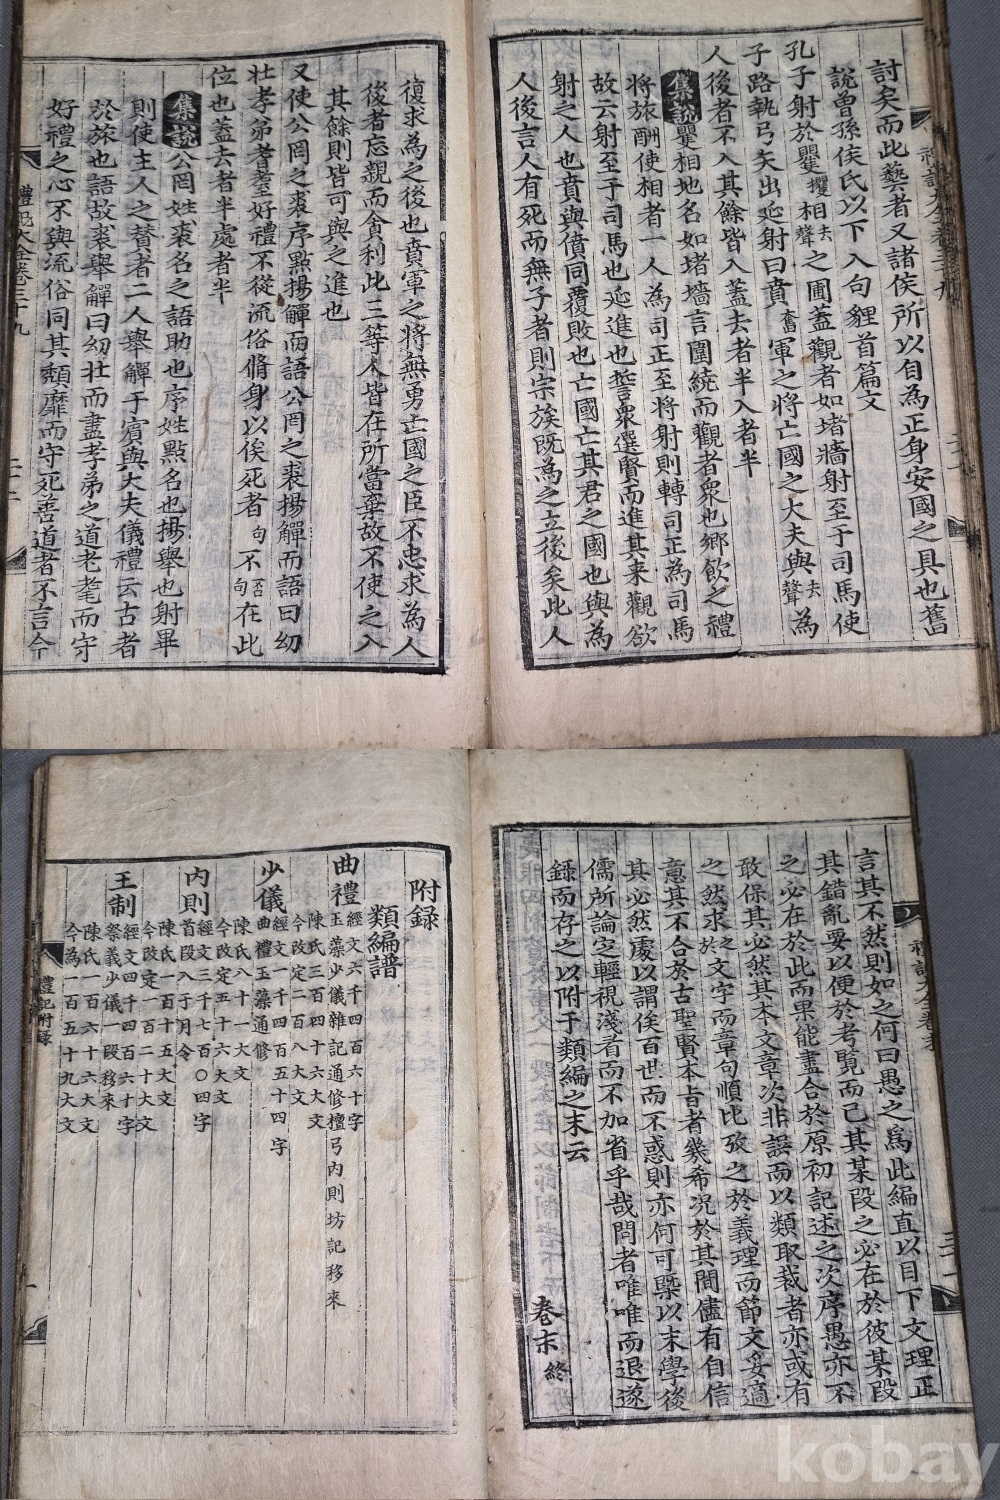 討矣而此藝者又諸侯所以自為正身安國之具也舊
說曾孫侯氏以下八句貍首篇文
孔子射於矍矍相去聲之圃蓋觀者如堵牆射至于司馬使
子路執弓矢出延射曰賁奮軍之將亡國之大夫與去聲為
人後者不入其餘皆入蓋去者半入者半
集說矍相地名如堵墻言圍繞而觀者衆也鄉飲之禮
將旅酬使相者一人為司正至將射則轉司正為司馬
故云射至于司馬也延進也誓衆選賢而進其来觀欲
射之人也賁與僨同覆敗也亡國亡其君之國也與為
人後言人有死而無子者則宗族既為之立後矣此人
復求為之後也賁軍之將無勇亡國之臣不忠求為人
後者忘親而貪利此三等人皆在所當棄故不使之入
其餘則皆可與之進也
又使公罔之裘序點揚觶而語公罔之裘揚觶而語曰幼
壯孝弟耆耋好禮不從流俗脩身以俟死者句不否句在此
位也蓋去者半處者半
集說公罔姓裘名之語助也序姓點名也揚舉也射畢
則使主人之賛者二人舉觶于賓與大夫儀禮云古者
於旅也語故裘舉觶曰幼壯而盡孝弟之道老耄而守
好禮之心不與流俗同其頹靡而守死善道者不言今
禮記大全卷二十九
二十二
言其不然則如之何曰愚之為此編直以目下文理正
其錯亂要以便於考覽而已其某段之必在於彼某段
之必在於此而果能盡合於原初記述之次序愚亦不
敢保其必然其本文章次非誤而以類取裁者亦或有
之然求之於文字而章句順比攷之於義理而節文妥適
意其不合於古聖賢本旨者幾希况於其間儘有自信
其必然處以謂俟百世而不惑則亦何可槩以末學後
儒所論定輕視淺者而不加省乎哉問者唯唯而退遂
錄而存之以附于類編之末云
卷末終
附録
類編譜
曲禮 經文六千四百六十字
玉藻少儀雜記通修檀弓內則坊記移來
陳氏三百四十六大文
今改定二百八大文
少儀 經文一千四百五十四字
曲禮玉藻通修
陳氏八十一大文
今改定五十六大文
內則 經文三千七百〇四字
首段入于月令
陳氏一百十五大文
今改定一百二十大文
王制 經文四千四百六十字
祭義少儀一段移來
陳氏一百六十六大文
今為一百五十九大文
禮記附錄
一
kobay